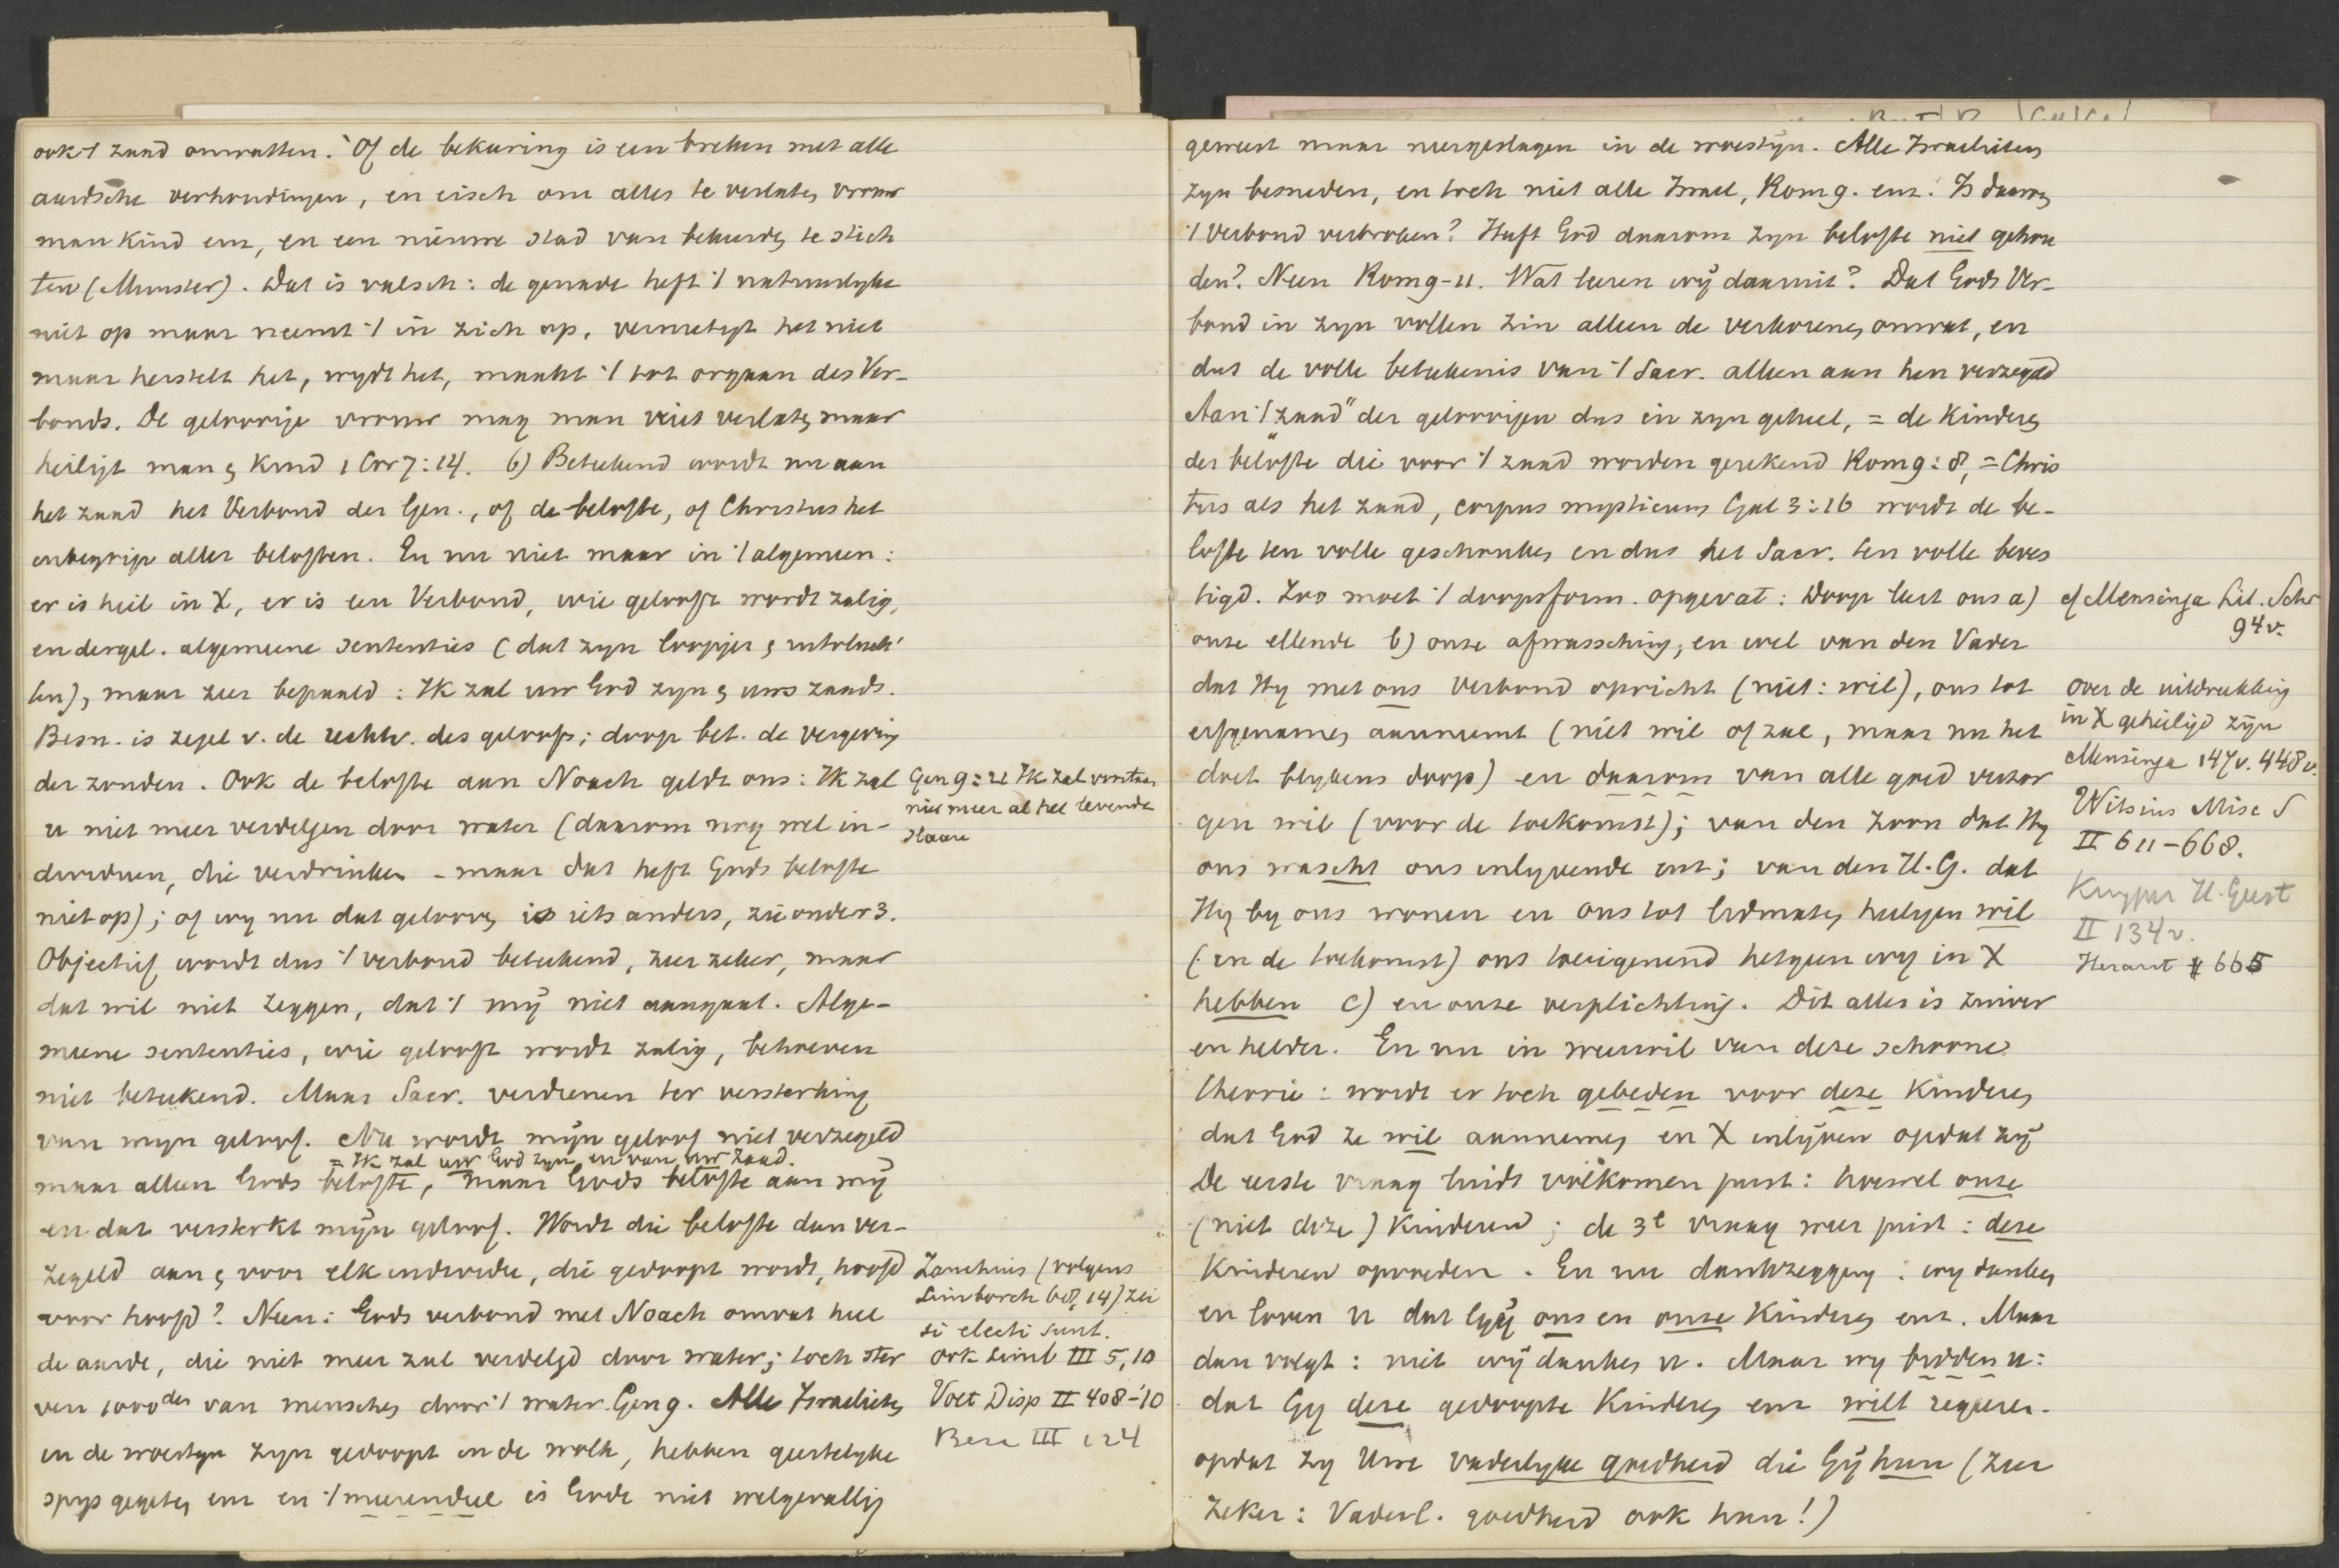 ook 't zaad omvatten. Of de bekeering is een breken met alle
aardsche verhoudingen, en eisch om alles te verlaten vrouw
man kind enz, en een nieuwe stad van bekeerden te stich
ten (Munster). Dat is valsch: de genade heft 't natuurlyke
niet op maar neemt 't in zich op, vernietigt het niet
maar herstelt het, wydt het, maakt 't tot orgaan des Ver-
bonds. De geloovige vrouw mag man niet verlaten maar
heiligt man & kind 1 Cor 7:14. b) Beteekend wordt nu aan
het zaad het Verbond der Gen., of de belofte, of Christus het
inbegrip aller beloften. En nu niet maar in 't algemeen:
er is heil in X, er is een Verbond, wie gelooft wordt zalig,
en dergel. algemeene sententies (dat zyn
len), maar zeer bepaald: Ik zal uw God zyn & uws zaads.
Besn. is zegel v. de rechtv. des geloofs; doop bet. de vergeving
der zonden. Ook de belofte aan Noach geldt ons: Ik zal
u niet meer verdelgen door water (daarom nog wel in-
dividuen, die verdrinken - maar dat heft Gods belofte
niet op); of wy nu dat gelooven is iets anders, zie onder 3.
Objectief wordt dus 't verbond beteekend, zeer zeker, maar
dat wil niet zeggen, dat 't mÿ niet aangaat. Alge-
meene sententies, wie gelooft wordt zalig, behoeven
niet beteekend. Maar Sacr. verdienen ter versterking
van myn geloof. Nu wordt mÿn geloof niet verzegeld
= Ik zal uw God zyn en van uw zaad.
maar alleen Gods belofte, maar Gods belofte aan mÿ
en dat versterkt mÿn geloof. Wordt die belofte dan ver-
zegeld aan & voor elk individu, die gedoopt wordt, hoofd
voor hoofd? Neen: Gods verbond met Noach omvat heel
de aarde, die niet meer zal verdelgd door water; toch ster
ven 1000den van menschen door 't water. Gen 9. Alle Israelieten
in de woestyn zyn gedoopt in de wolk, hebben geestelyke
spys gegeten enz en 't meerendeel is Gode niet welgevallig
Gen 9:21 Ik zal voortaan
niet meer al het levende
slaan
Zanchius (volgens
Limborch 68, 14) zei
si electi sunt.
ook Limb III 5, 10
Voet Disp II 408-'10
Beza III 124
geweest maar neergeslagen in de woestÿn. Alle Israelieten
zyn besneden, en toch niet alle Israel, Rom 9. enz. Is daarom
't Verbond verbroken? Heeft God daarom zyn belofte niet gehou
den? Neen Rom 9-11. Wat leeren wÿ daaruit? Dat Gods Ver-
bond in zyn vollen zin alleen de verkorenen omvat, en
dat de volle beteekenis van 't Sacr. alleen aan hen verzegeld
Aan 't "zaad" der geloovigen dus in zyn geheel, = de kinderen
der belofte die voor 't zaad worden gerekend Rom 9:8, = Chris
tus als het zaad, corpus mysticum Gal 3:16 wordt de be-
lofte ten volle geschonken en dus het Sacr. ten volle beves
tigd. Zoo moet 't doopsform. opgevat: Doop leert ons a)
onze ellende b) onze afwassching, en wel van den Vader
dat Hy met ons verbond opricht (niet: wil), ons tot
erfgenamen aanneemt (niet wil of zal, maar nu het
doet blykens doop) en daarom van alle goed verzor
gen wil (voor de toekomst); van den Zoon dat Hy
ons wascht ons inlyvende enz; van den H.G. dat
Hy by ons wonen en ons tot lidmaten heiligen wil
(in de toekomst) ons toeeigenend hetgeen wy in X
hebben c) en onze verplichting. Dit alles is zuiver
en helder. En nu in weerwil van deze schoone
theorie: wordt er toch gebeden voor deze kinderen
dat God ze wil aannemen en X inlÿven opdat zÿ
De eerste vraag luidt volkomen juist: hoewel onze
(niet deze) kinderen; de 3e vraag weer juist: deze
kinderen opvoeden. En nu dankzegging: wy danken
en loven U dat Gÿ ons en onze kinderen enz. Maar
dan volgt: niet wÿ danken U. Maar wy bidden U:
dat Gy deze gedoopte kinderen enz wilt regeeren.
opdat zy Uwe vaderlyke goedheid die Gÿ hun (zeer
zeker: Vaderl. goedheid ook hun!)
cf Mensinga Lit. Schr
94v.
over de uitdrukking
in X geheiligd zÿn
Mensinga 147v. 448v.
Witsius Misc S
II 611-668.
Kuyper H. Geest
II 134v.
Heraut # 665